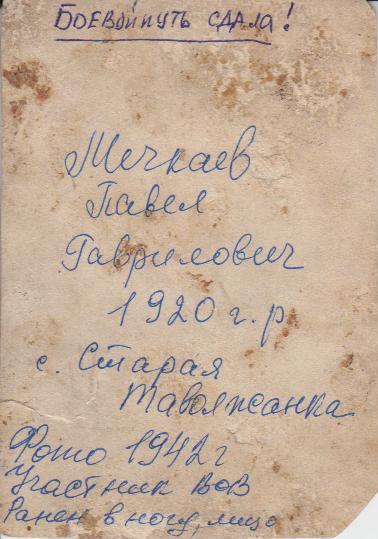 БОЕВОЙ ПУТЬ СДАЛА!
Мечкаев
Павел
Гаврилович
1920 г. р
с. Старая
Таволжанка
Фото 1942 г
Участник ВОВ
Ранен в ногу, лицо